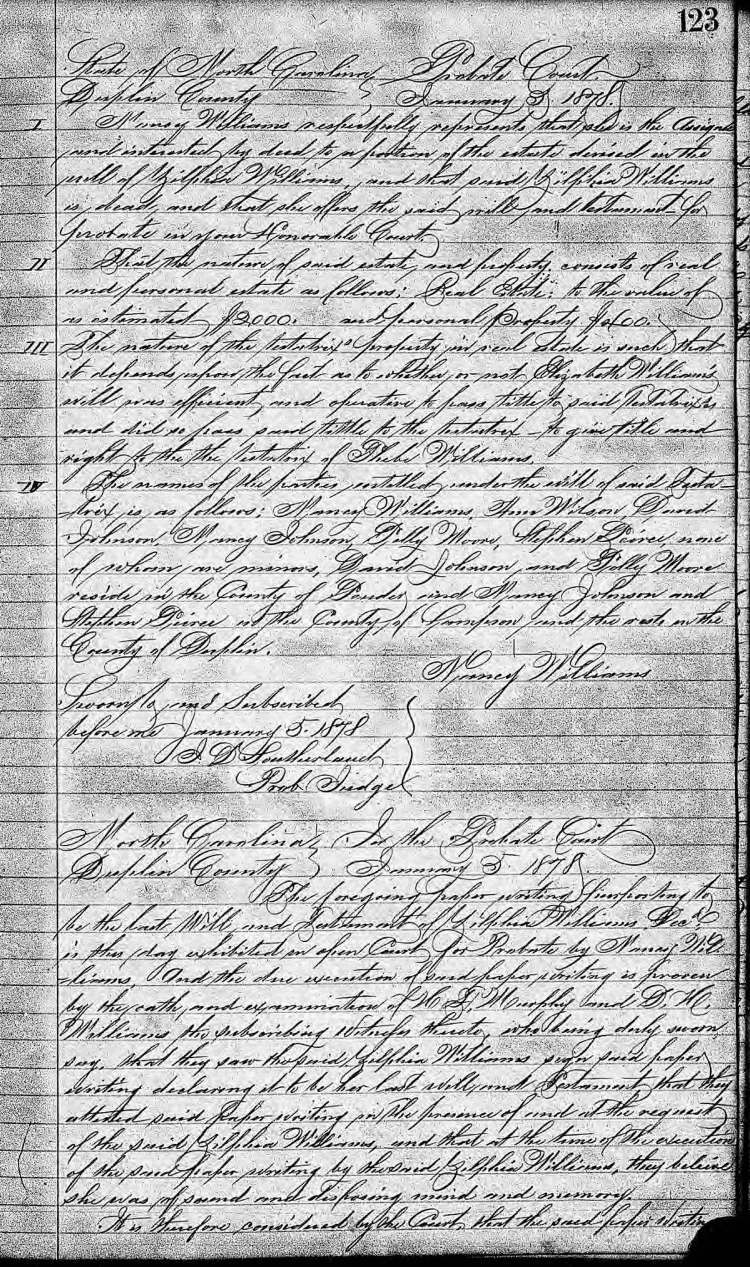 123
State of North Carolina } Probate Court
Duplin County } January 5, 1878.
I Nancy Williams respectfully represents that she is the assignee
and interested by deed to a portion of the estate devised in the
will of Zilphia Williams, and that said Zilphia Williams
is dead, and that she offers the said will and testament for
probate in your Honorable Court.
II That the nature of said estate, and property, consists of real
and personal estate as follows: Real Estate; to the value of
as estimated $2000. and personal Property $
III The nature of the testatrix' property in real Estate is such that
it depends upon the fact as to whether or not Elizabeth Williams
will was efficient and operative to pass tittle to said Testatrix &
and did so pass said tittle to the testatrix to give title and
right to the the testatrix of Phebe Williams.
IV The names of the parties entitled under the will of said Testa-
trix is as follows: Nancy Williams, Ann Wilson, David
Johnson, Nancy Johnson, Polly Moore, Stephen Peirce none
of whom are minors, David Johnson, and Polly Moore
reside in the County of Pender, and Nancy Johnson and
Stephen Peirce in the County of Sampson, and the rest in the
County of Duplin.
Nancy Williams
Sworn to and Subscribed
before me January 5. 1878
J. D. Southerland
Prob. Judge
North Carolina } In the Probate Court
Duplin County } January 5. 1878
The foregoing paper writing purporting to
be the last Will and Testament of Zilphia Williams Decd.
is this day exhibited in open Court, for Probate by Nancy Wil-
-liams, And the due execution of said paper writing is proven
by the oath, and examination of H. F. Murphy and D. H.
Williams the subscribing witness thereto, who being duly sworn,
say, that they saw the said, Zilphia Williams sign said paper
writing declaring it to be her last will and Testament, that they
attested said paper writing in the presence of and at the request
of the said Zilphia Williams, and that at the time of the execution
of the said paper writing by the said Zilphia Williams, they believe
she was of sound and disposing mind and memory.
It is therefore considered by the Court, that the said paper writing